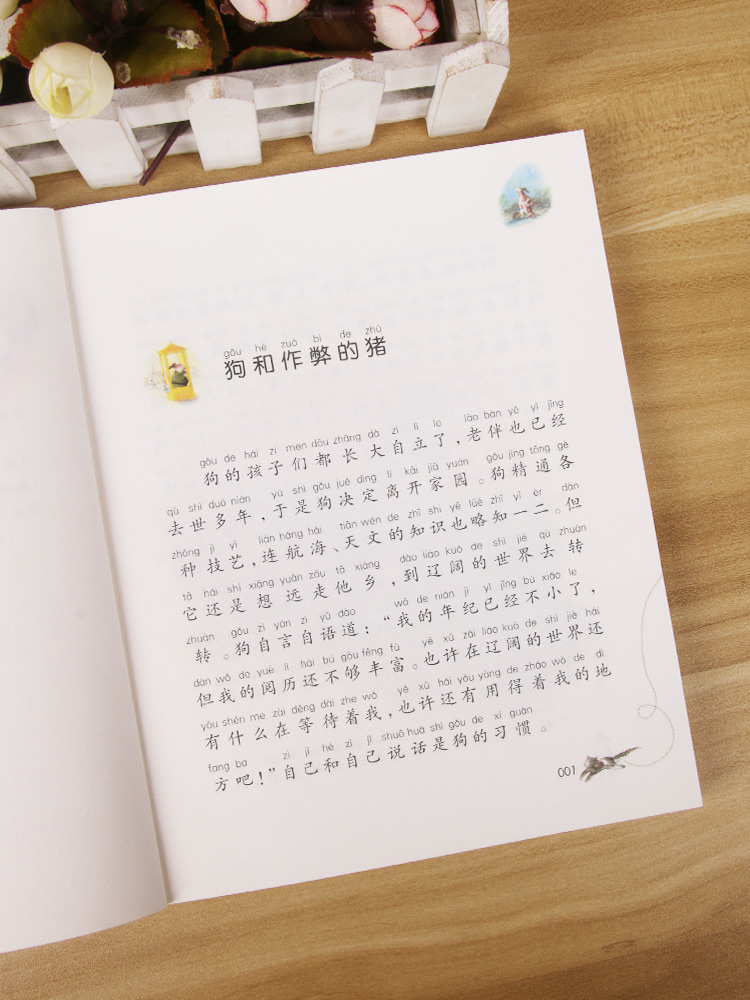 gǒu hé zuò bì de zhū
狗和作弊的猪
gǒu de hái zi men dōu zhǎng dà zì lì le lǎo bàn yě yǐ jīng
狗的孩子们都长大自立了，老伴也已经
qù shì duō nián yú shì gǒu jué dìng lí kāi jiā yuán gǒu jīng tōng gè
去世多年，于是狗决定离开家园。狗精通各
zhǒng jì yì lián háng hǎi tiān wén de zhī shi yě lüè zhī yī èr dàn
种技艺，连航海、天文的知识也略知一二。但
tā hái shì xiǎng yuǎn zǒu tā xiāng dào liáo kuò de shì jiè qù zhuàn
它还是想远走他乡，到辽阔的世界去转
zhuàn gǒu zì yán zì yǔ dào wǒ de nián jì yǐ jīng bù xiǎo le
转。狗自言自语道：“我的年纪已经不小了，
dàn wǒ de yuè lì hái bú gòu fēng fù yě xǔ zài liáo kuò de shì jiè hái
但我的阅历还不够丰富。也许在辽阔的世界还
yǒu shén me zài děng dài zhe wǒ yě xǔ hái yǒu yòng de zháo wǒ de dì
有什么在等待着我，也许还有用得着我的地
fang ba zì jǐ hé zì jǐ shuō huà shì gǒu de xí guàn
方吧！”自己和自己说话是狗的习惯。
001